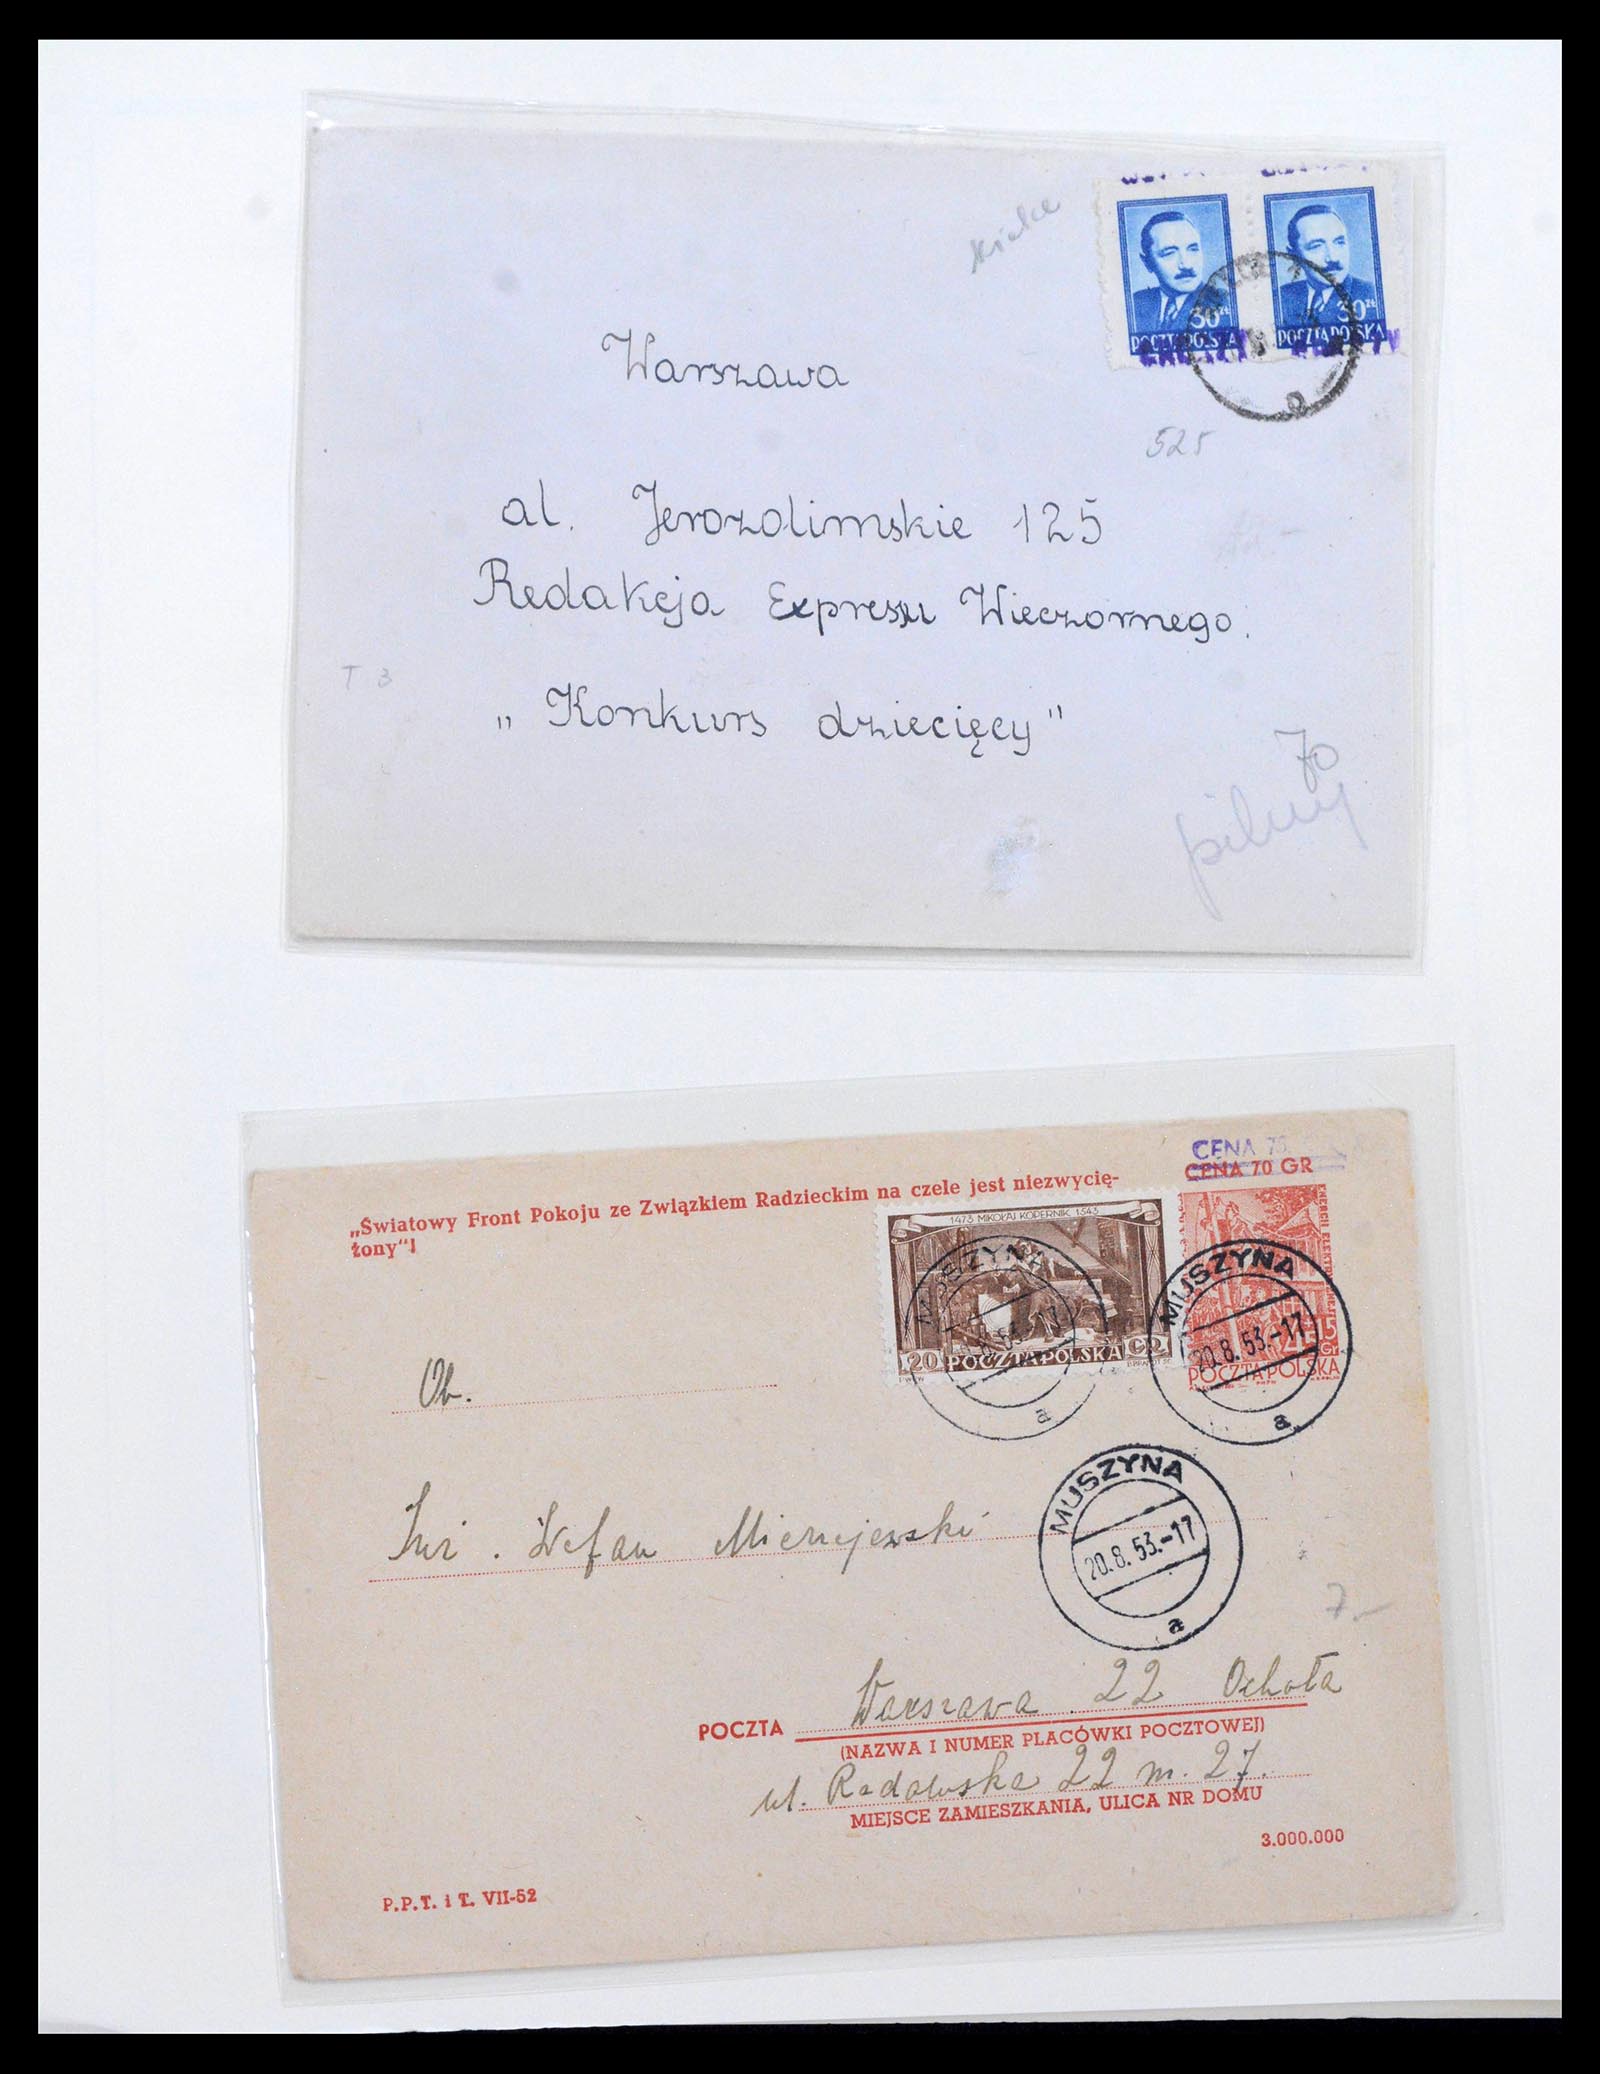 30 zł
POCZTA POLSKA
30 zł
POCZTA POLSKA
Warszawa
525
al. Jerozolimskie 125
Redakcja Expressu Wieczornego.
T 3
„Konkurs dziecięcy"
70
pilny
CENA 70 GR
„Światowy Front Pokoju ze Związkiem Radzieckim na czele jest niezwycię-
żony"!
1473 MIKOŁAJ KOPERNIK 1543
20 POCZTA POLSKA GR
POCZTA POLSKA
MUSZYNA
20.8.53.-17
a
MUSZYNA
20.8.53.-17
a
Ob.
MUSZYNA
20.8.53.-17
a
Inż. Stefan Mierzejewski
7.-
POCZTA Warszawa 22 Ochota
(NAZWA I NUMER PLACÓWKI POCZTOWEJ)
ul. Radomska 22 m. 27.
MIEJSCE ZAMIESZKANIA, ULICA NR DOMU
3.000.000
P.P.T. i T. VII-52